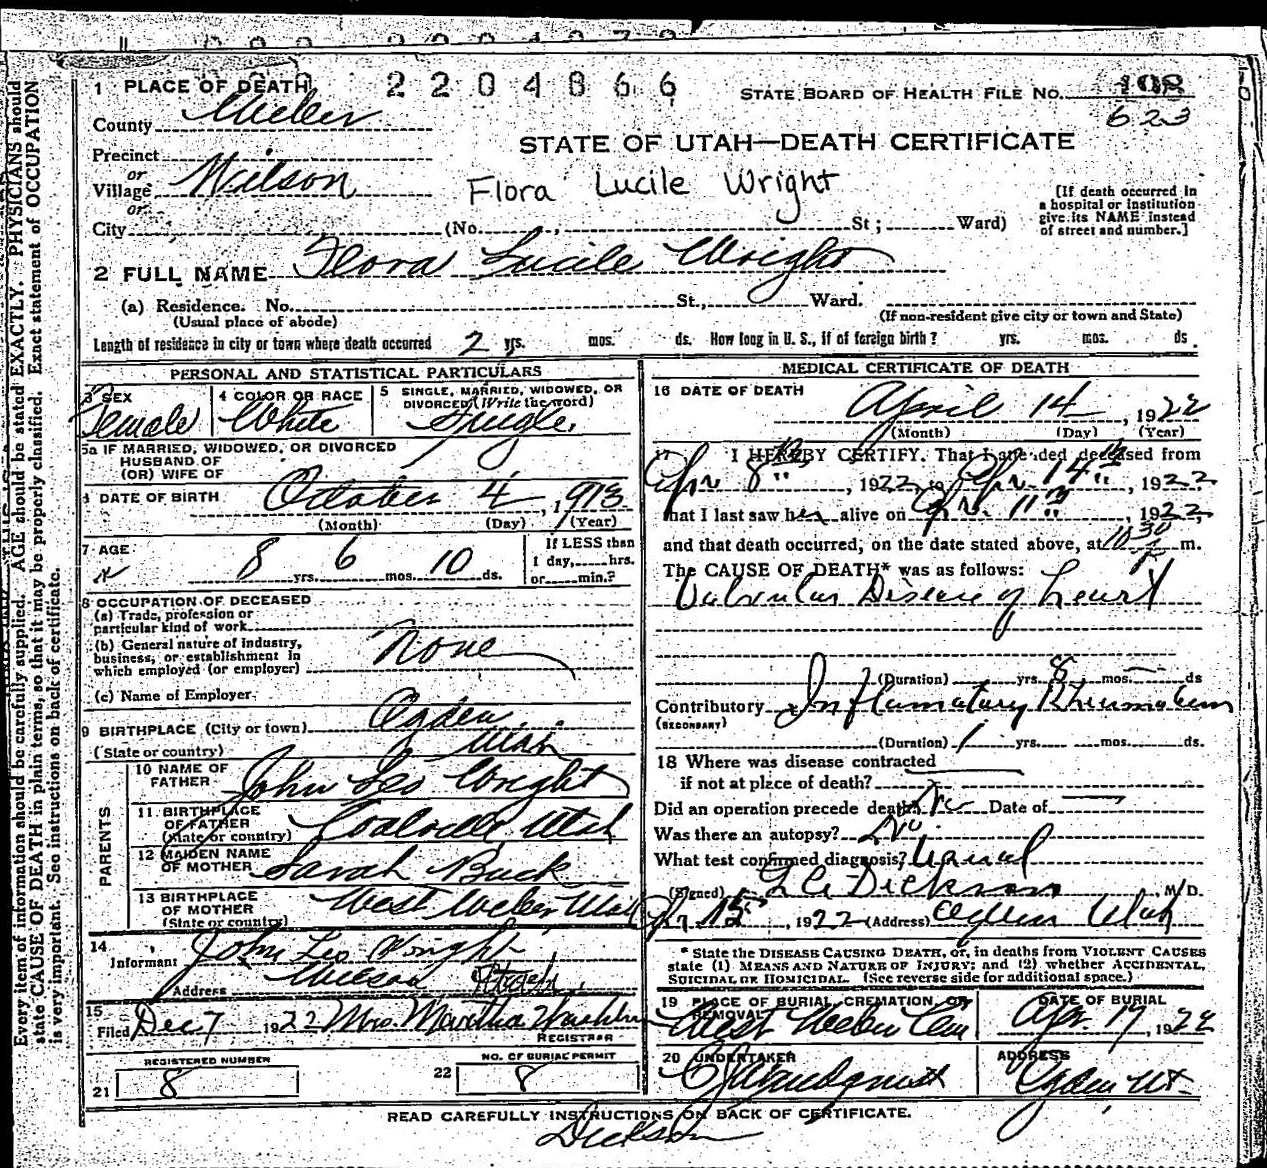 2204866
1 PLACE OF DEATH
STATE BOARD OF HEALTH FILE NO. 108
623
County Weber
STATE OF UTAH—DEATH CERTIFICATE
Precinct
or
Village Wilson
Flora Lucile Wright
[If death occurred in
a hospital or institution
give its NAME instead
of street and number.]
or
City (No. , St ; Ward)
2 FULL NAME Flora Lucile Wright
(a) Residence. No. St., Ward.
(Usual place of abode) (If non-resident give city or town and State)
Length of residence in city or town where death occurred 2 yrs. mos. ds. How long in U. S., if of foreign birth ? yrs. mos. ds.
PERSONAL AND STATISTICAL PARTICULARS
3 SEX Female
4 COLOR OR RACE White
5 SINGLE, MARRIED, WIDOWED, OR
DIVORCED (Write the word)
Single
5a IF MARRIED, WIDOWED, OR DIVORCED
HUSBAND OF
(OR) WIFE OF
DATE OF BIRTH October 4, 1913
(Month) (Day) (Year)
7 AGE 8 yrs. 6 mos. 10 ds.
If LESS than
1 day, hrs.
or min.?
8 OCCUPATION OF DECEASED
(a) Trade, profession or
particular kind of work
(b) General nature of industry,
business, or establishment in
which employed (or employer) None
(c) Name of Employer
9 BIRTHPLACE (City or town) Ogden
(State or country) Utah
PARENTS
10 NAME OF
FATHER John Leo Wright
11 BIRTHPLACE
OF FATHER
(State or country) Coalville Utah
12 MAIDEN NAME
OF MOTHER Sarah Buck
13 BIRTHPLACE
OF MOTHER
(State or country) West Weber Utah
14
Informant John Leo Wright
Address Wilson Utah
15
Filed Dec 7 1922 Mrs. Martha
REGISTRAR
REGISTERED NUMBER
21 8
NO. OF BURIAL PERMIT
22 8
MEDICAL CERTIFICATE OF DEATH
16 DATE OF DEATH
April 14, 1922
(Month) (Day) (Year)
17 I HEREBY CERTIFY, That I attended deceased from
Apr 8th, 1922 to Apr. 14th, 1922
that I last saw her alive on Apr. 11, 1922,
and that death occurred, on the date stated above, at 10 30 A m.
The CAUSE OF DEATH* was as follows:
Valvular Disease of heart
(Duration) yrs. 8 mos. — ds
Contributory Inflamatory Rheumatism
(SECONDARY)
(Duration) 1 yrs. mos. ds.
18 Where was disease contracted
if not at place of death?
Did an operation precede death? No Date of —
Was there an autopsy? No
What test confirmed diagnosis? Usual
(Signed) Dickson M. D.
Apr 15, 1922 (Address) Ogden Utah
* State the DISEASE CAUSING DEATH, or, in deaths from VIOLENT CAUSES
state (1) MEANS AND NATURE OF INJURY; and (2) whether ACCIDENTAL,
SUICIDAL OR HOMICIDAL. (See reverse side for additional space.)
19 PLACE OF BURIAL, CREMATION, OR
REMOVAL
West Weber Cem
DATE OF BURIAL
Apr. 17, 1922
20 UNDERTAKER
ADDRESS
Ogden Ut
READ CAREFULLY INSTRUCTIONS ON BACK OF CERTIFICATE.
Dickson
Every item of information should be carefully supplied. AGE should be stated EXACTLY. PHYSICIANS should
state CAUSE OF DEATH in plain terms, so that it may be properly classified. Exact statement of OCCUPATION
is very important. See instructions on back of certificate.